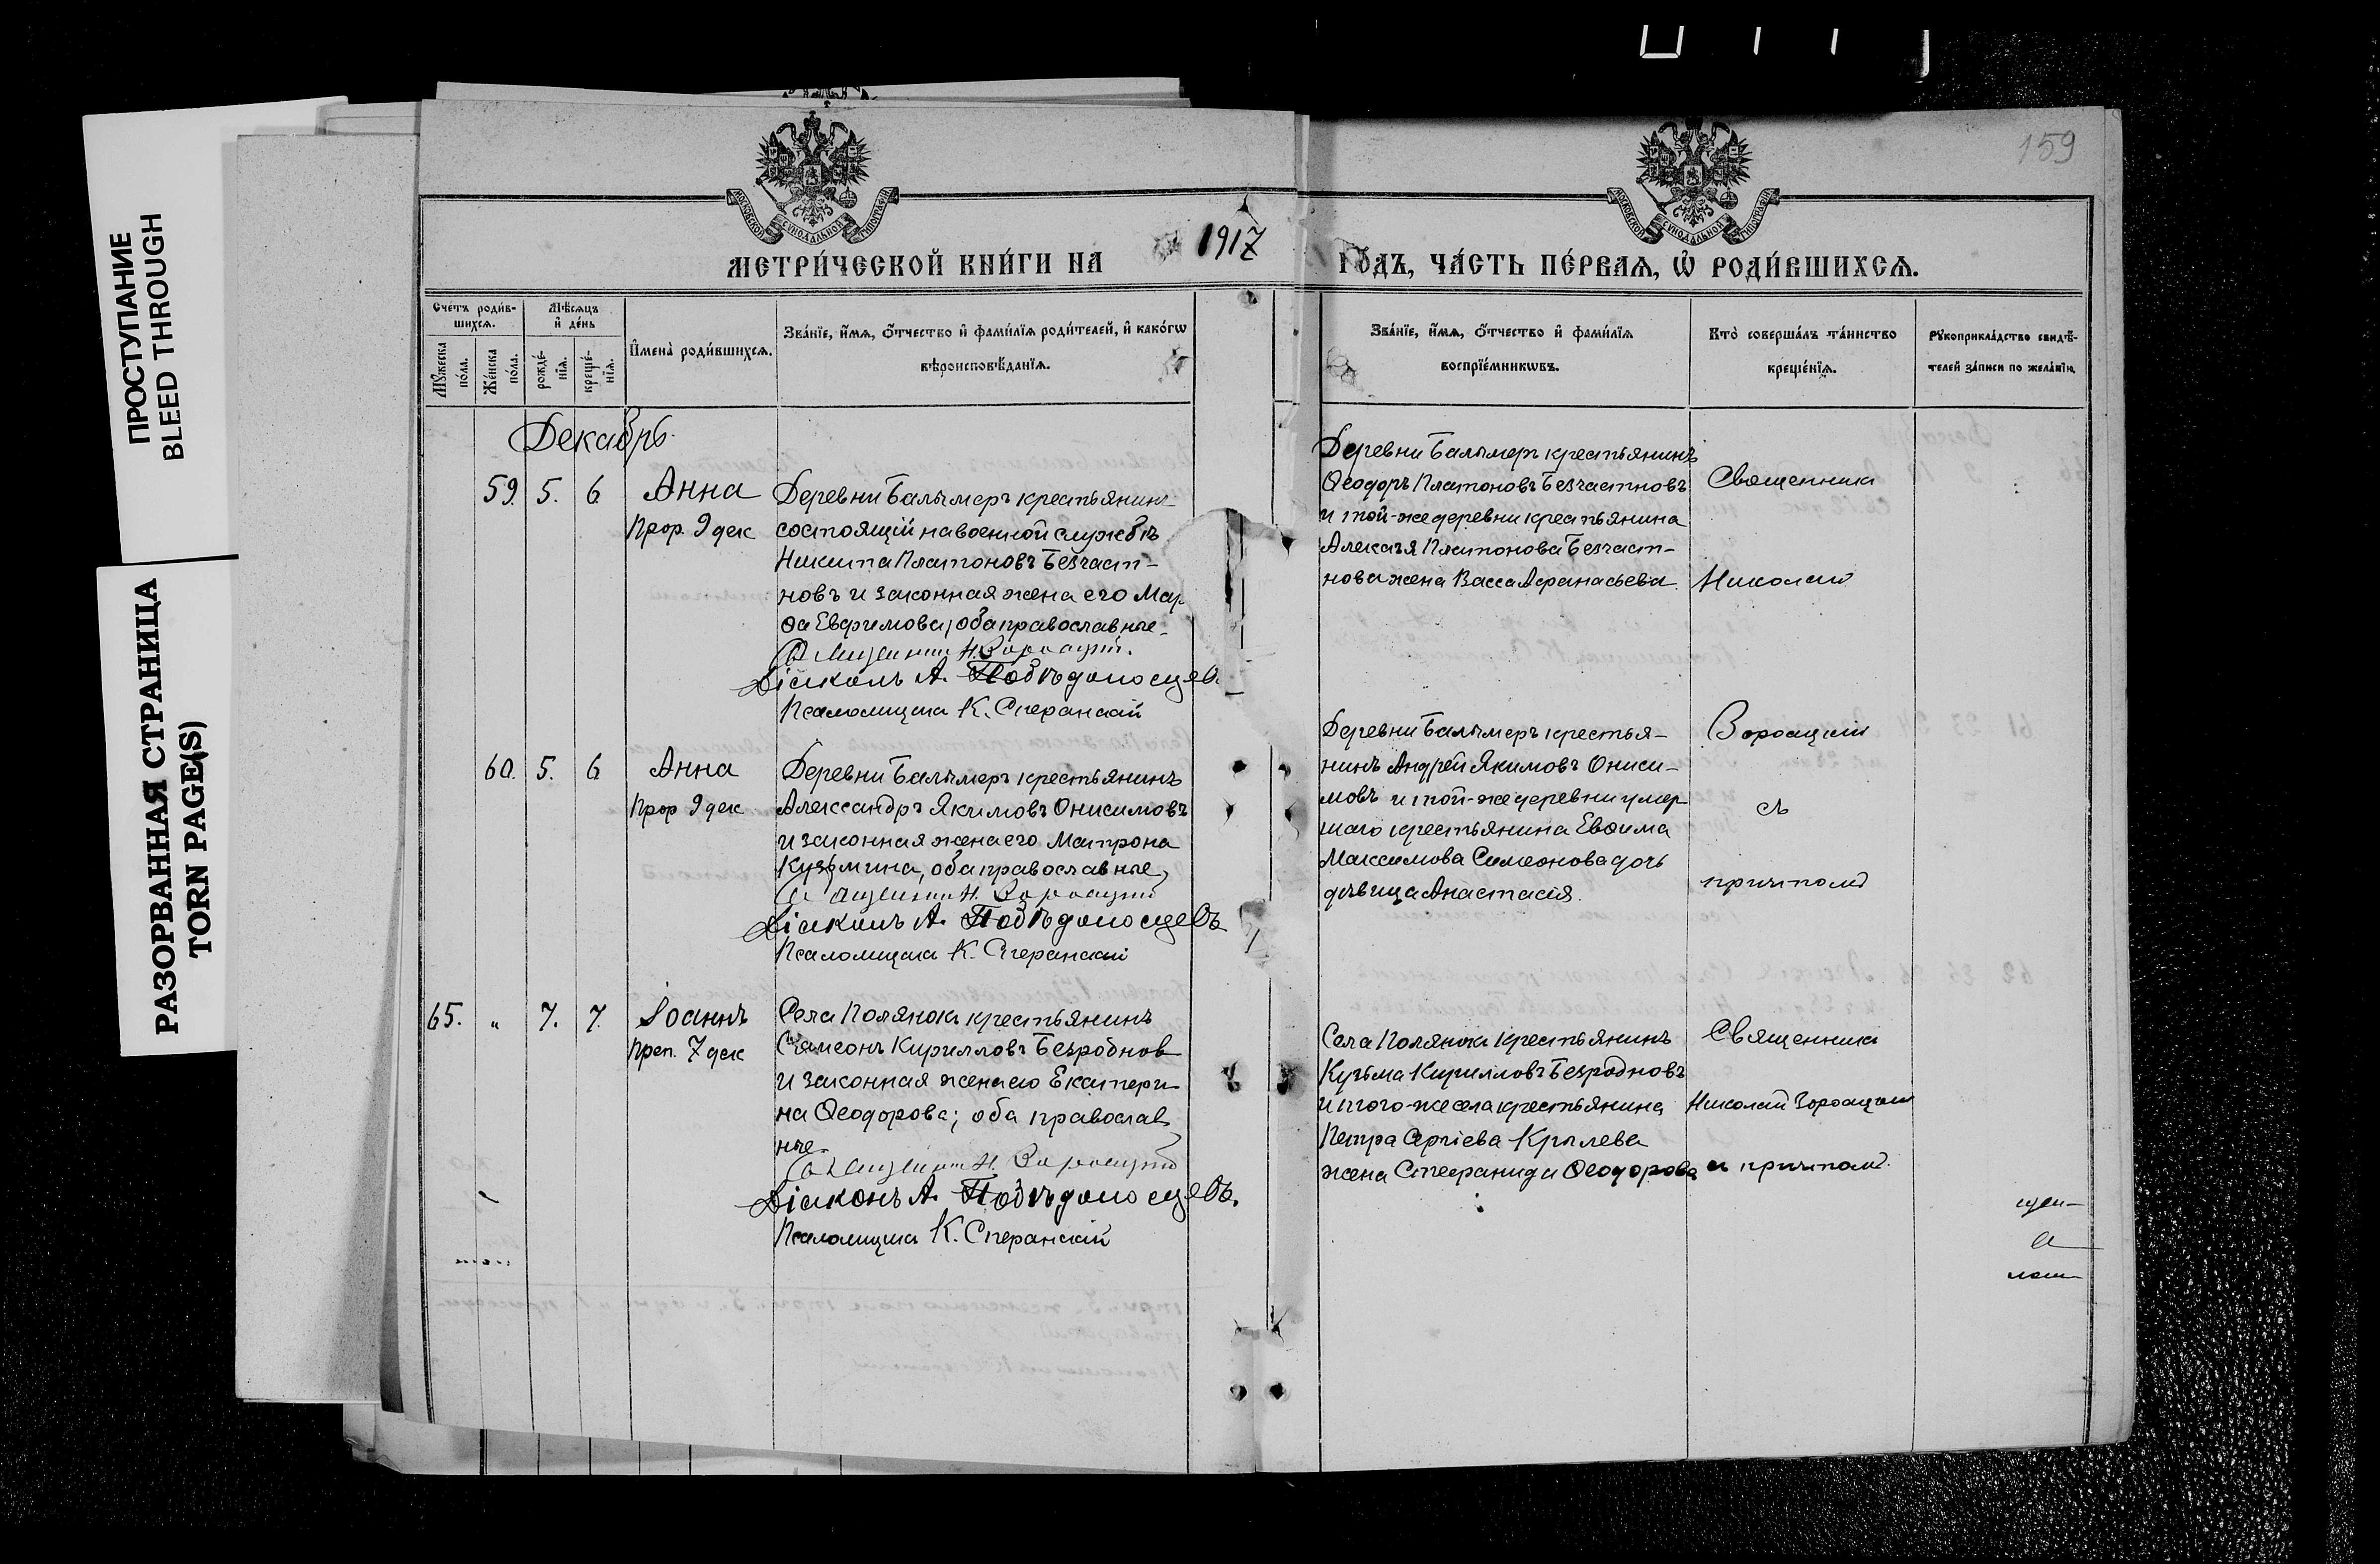 ПРОСТУПАНИЕ
BLEED THROUGH
РАЗОРВАННАЯ СТРАНИЦА
TORN PAGE(S)
159
МОСКОВСКОЙ СѴНОДАЛЬНОЙ ТИПОГРАФІИ
МОСКОВСКОЙ СѴНОДАЛЬНОЙ ТИПОГРАФІИ
МЕТРИ́ЧЕСКОЙ КНИ́ГИ НА 1917 ГО́ДЪ, ЧА́СТЬ ПЕ́РВАѦ, Ѡ҆ РОДИ́ВШИХСѦ.
Сче́тъ роди́в-
шихсѧ.
Мѣ́сѧцъ
и҆ де́нь
Мꙋ́жеска
по́ла.
Же́нска
по́ла.
рожде́-
нїѧ.
креще́-
нїѧ.
И҆мена̀ роди́вшихсѧ.
Зва́нїе, и҆́мѧ, ѻ҆́тчество и҆ фами́лїѧ роди́телей, и҆ како́гѡ
вѣроисповѣ́данїѧ.
Зва́нїе, и҆́мѧ, ѻ҆́тчество и҆ фами́лїѧ
воспрїе́мникѡвъ.
Кто̀ соверша́лъ та́инство
креще́нїѧ.
Рꙋкоприкла́дство свидѣ́-
телей за́писи по жела́нїю.
Декабрь.
59. 5. 6 Анна
Прор. 9 дек
Деревни Балымеръ крестьянинъ
состоящій на военной службѣ
Никита Платоновъ Безчаст-
новъ и законная жена его Мар-
ѳа Евфимова, оба православные.
Священникъ Н.
Діаконъ А. Побѣдоносцевъ
Псаломщикъ К. Сперанскій
Деревни Балымеръ крестьянинъ
Ѳеодоръ Платоновъ Безчастновъ
и той-же деревни крестьянина
Платонова Безчаст-
нова жена Васса Афанасьева.
Священникъ
Николай
60. 5. 6 Анна
Прор 9 дек
Деревни Балымеръ крестьянинъ
Александръ Якимовъ Онисимовъ
и законная жена его Матрона
Кузьмина, оба православные,
Священникъ Н.
Діаконъ А. Побѣдоносцевъ
Псаломщикъ К. Сперанскій
Деревни Балымеръ крестья-
нинъ Андрей Якимовъ Ониси-
мовъ и той-же деревни умер
шаго крестьянина Евѳима
Максимова Симеонова дочь
дѣвица Анастасія.
съ
причтомъ
65. " 7. 7. Іоаннъ
Преп. 7 дек
Села Полянокъ крестьянинъ
Симеонъ Кирилловъ Безроднов
и законная жена его Екатери-
на Ѳеодорова; оба православ
ные.
Священникъ Н.
Діаконъ А. Побѣдоносцевъ.
Псаломщикъ К. Сперанскій
Села Полянокъ крестьянинъ
Кузьма Кирилловъ Безродновъ
и того-же села крестьянина
Петра Сергіева Крылева
жена Стефанида Ѳеодорова
Священникъ
Николай
съ причтомъ.